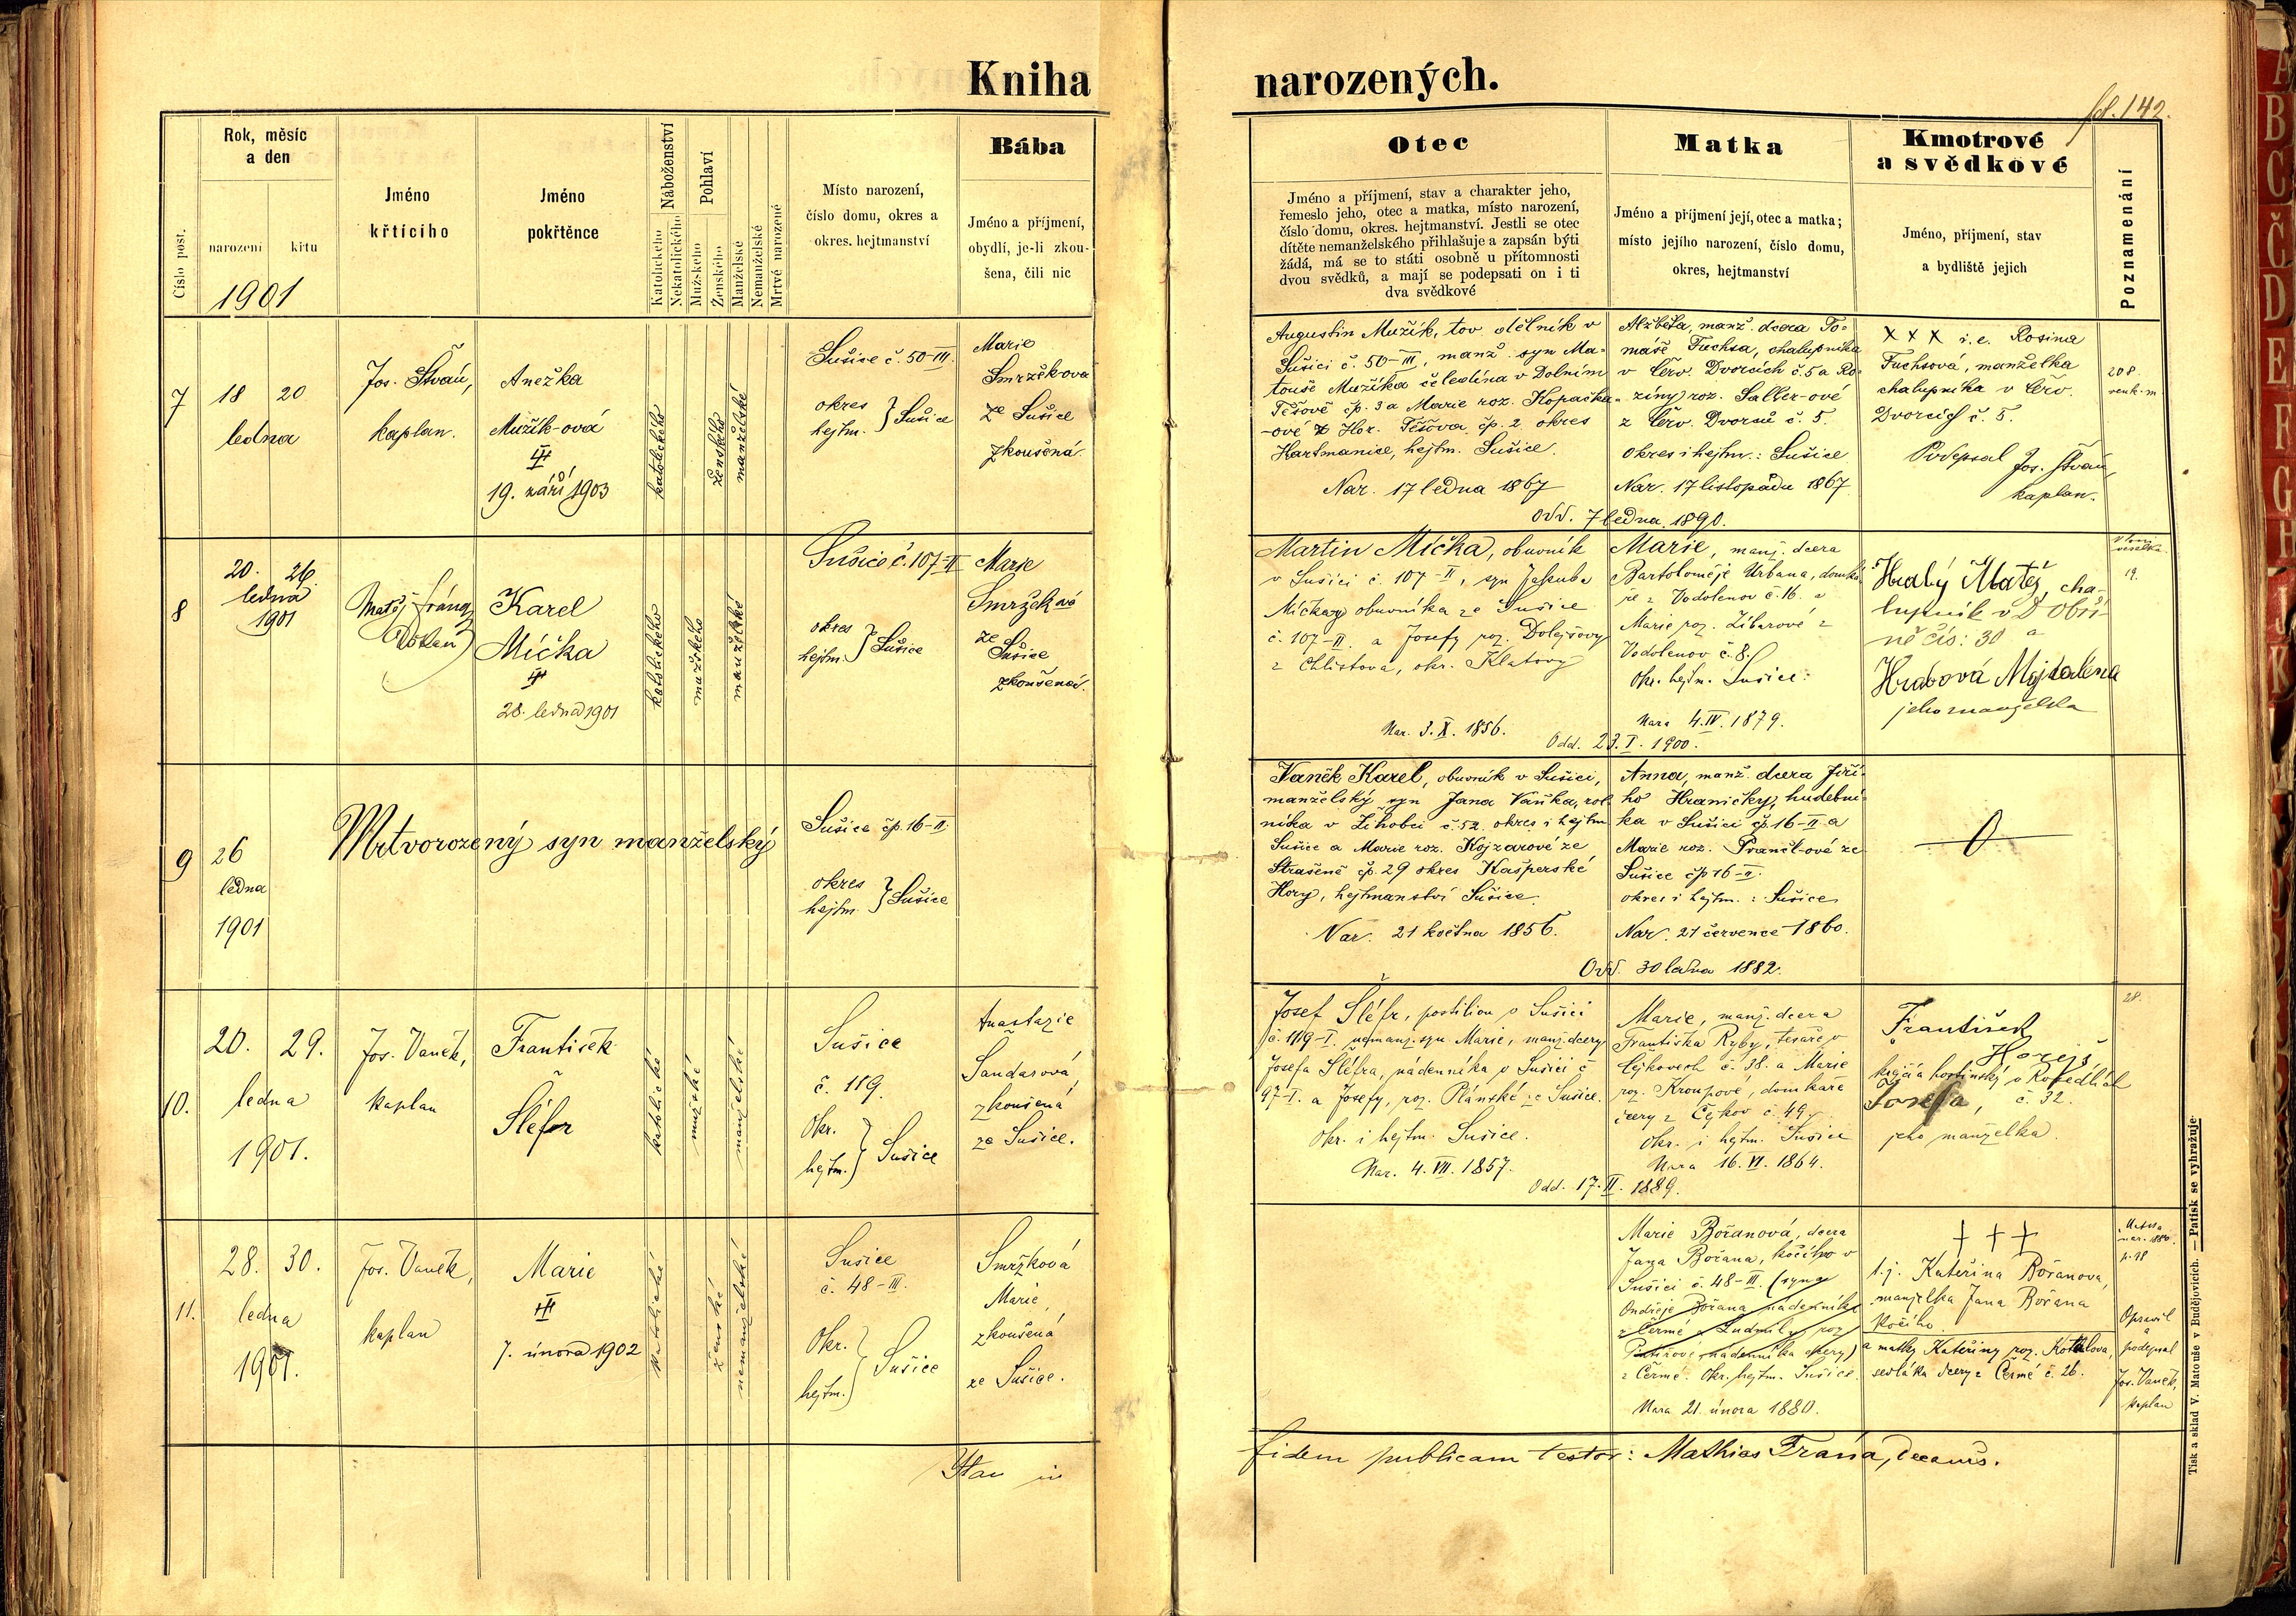 Kniha narozených.
fol. 142.
Číslo post.
Rok, měsíc
a den
narození křtu
1901
Jméno
křtícího
Jméno
pokřtěnce
Náboženství
Katolického
Nekatolického
Pohlaví
Mužského
Ženského
Manželské
Nemanželské
Mrtvě narozené
Místo narození,
číslo domu, okres a
okres. hejtmanství
Bába
Jméno a příjmení,
obydlí, je-li zkou-
šena, čili nic
Otec
Jméno a příjmení, stav a charakter jeho,
řemeslo jeho, otec a matka, místo narození,
číslo domu, okres. hejtmanství. Jestli se otec
dítěte nemanželského přihlašuje a zapsán býti
žádá, má se to státi osobně u přítomnosti
dvou svědků, a mají se podepsati on i ti
dva svědkové
Matka
Jméno a příjmení její, otec a matka;
místo jejího narození, číslo domu,
okres, hejtmanství
Kmotrové
a svědkové
Jméno, příjmení, stav
a bydliště jejich
Poznamenání
7
18 20
ledna
Jos. Štván,
kaplan.
Anežka
Mužík-ová
19. září 1903
katolického
ženského
manželské
Sušice č. 50-III.
okres
hejtm. } Sušice
Marie
Smržková
ze Sušice
zkoušená
Augustin Mužík, tov. dělník v
Sušici č. 50-III, manž. syn Ma-
touše Mužíka čeledína v Dolním
Těšově čp. 3 a Marie roz. Kopačka-
-ové z Hor. Těšova čp. 2 okres
Hartmanice, hejtm. Sušice.
Nar. 17 ledna 1867
Alžběta, manž. dcera To-
máše Fuchsa, chalupníka
v Červ. Dvorcích č. 5 a Ro-
ziny roz. Saller-ové
z Červ. Dvorců č. 5.
okres i hejtm.: Sušice
Nar. 17 listopadu 1867
Odd. 7 ledna 1890.
XXX i. e. Rosina
Fuchsová, manželka
chalupníka v Červ.
Dvorcích č. 5.
Podepsal Jos. Štván,
kaplan.
208.
8
20. 26.
ledna
1901
Matěj Frána,
Děkan
Karel
Míčka
28. ledna 1901
katolického
mužského
manželské
Sušice č. 107-II
okres
hejtm. } Sušice
Marie
Smržková
ze
Sušice
zkoušená.
Martin Míčka, obuvník
v Sušici č. 107-II, syn Jakuba
Míčky obuvníka ze Sušice
č. 107-II. a Josefy roz. Dolejšovy
z Chlistova, okr. Klatovy
Nar. 3. X. 1856.
Marie, manž. dcera
Bartoloměje Urbana, domká-
ře z Vodolenov č. 16. a
Marie roz. Žibarové z
Vodolenov č. 8.
Okr. hejtm. Sušice.
Nara 4. IV. 1879.
Odd. 23. I. 1900.
Hrabý Matěj, cha-
lupník v Dobři-
ně čís: 30 a
Hrabová Majdalena
jeho manželka
19.
9
26
ledna
1901
Mrtvorozený syn manželský
Sušice čp. 16-II.
okres
hejtm. } Sušice
Vaněk Karel, obuvník v Sušici,
manželský syn Jana Vaňka, rol-
níka v Žihobci č. 52. okres i hejtm.
Sušice a Marie roz. Kojzarové ze
Strašené čp. 29 okres Kašperské
Hory, hejtmanství Sušice.
Nar. 21 května 1856.
Anna, manž. dcera Jiří-
ho Hraničky, hudební-
ka v Sušici čp. 16-II a
Marie roz. Prančl-ové ze
Sušice čp 16-II.
okres i hejtm.: Sušice
Nar. 21 července 1860.
Odd. 30 ledna 1882.
10.
20. 29.
ledna
1901.
Jos. Vaněk,
kaplan
František
Šléfr
katolické
mužské
manželské
Sušice
č. 119.
Okr.
hejtm. } Sušice
Anastazie
Šandarová,
zkoušená
ze Sušice.
Josef Šléfr, postilion v Sušici
č. 119-I. nemanž. syn Marie, manž. dcery
Josefa Šléfra, nádenníka v Sušici č.
97-I. a Josefy, roz. Plánské ze Sušice.
Okr. i hejtm. Sušice.
Nar. 4. VII. 1857.
Marie, manž. dcera
Františka Ryby, tesaře v
Čejkovech č. 38. a Marie
roz. Kroupové, domkáře
dcery z Čejkov č. 49.
Okr. i hejtm. Sušice
Nara 16. VI. 1864.
Odd. 17. II. 1889.
František
Horejš,
krejčí a hostinský v Rosedlích
Josefa, č. 32.
jeho manželka.
28.
11.
28. 30.
ledna
1901.
Jos. Vaněk,
kaplan
Marie
7. února 1902
katolické
ženské
nemanželské
Sušice
č. 48-III.
Okr.
hejtm. } Sušice
Smržková
Marie,
zkoušená
ze Sušice.
Marie Bořanová, dcera
Jana Bořana, kočího v
Sušici č. 48-III. (syna
Ondřeje Bořana nádenníka
z Čermé a Ludmily, roz.
nádenníka dcery)
z Čermé. Okr. hejtm. Sušice.
Nara 21. února 1880.
† † †
t. j. Kateřina Bořanova,
manželka Jana Bořana
kočího.
a matky Kateřiny roz. Kotálova,
sedláka dcery z Čermé č. 26.
Matka
nar. 1880.
p. 18
Opravil
a
podepsal
Jos. Vaněk,
kaplan
Ita in
fidem publicam testor: Mathias Frána, decanus.
Tisk a sklad V. Matouše v Budějovicích. — Patisk se vyhražuje.